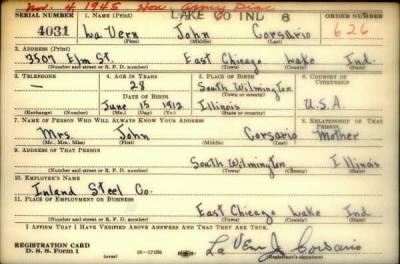 Nov. 4 1945 Hon. Army Disc
SERIAL NUMBER 1. NAME (Print) LAKE CO IND 6 ORDER NUMBER
4031 La Vern John Corsario 626
(First) (Middle) (Last)
2. ADDRESS (Print)
3507 Elm St. East Chicago Lake Ind.
(Number and street or R. F. D. number) (Town) (County) (State)
3. TELEPHONE 4. AGE IN YEARS 5. PLACE OF BIRTH 6. COUNTRY OF CITIZENSHIP
— 28 South Wilmington
DATE OF BIRTH (Town or county)
June 15 1912 Illinois U.S.A.
(Exchange) (Number) (Mo.) (Day) (Yr.) (State or country)
7. NAME OF PERSON WHO WILL ALWAYS KNOW YOUR ADDRESS 8. RELATIONSHIP OF THAT PERSON
Mrs. John Corsario Mother
(Mr., Mrs., Miss) (First) (Middle) (Last)
9. ADDRESS OF THAT PERSON
South Wilmington Illinois
(Number and street or R. F. D. number) (Town) (County) (State)
10. EMPLOYER'S NAME
Inland Steel Co.
11. PLACE OF EMPLOYMENT OR BUSINESS
East Chicago Lake Ind
(Number and street or R. F. D. number) (Town) (County) (State)
I AFFIRM THAT I HAVE VERIFIED ABOVE ANSWERS AND THAT THEY ARE TRUE.
REGISTRATION CARD
D. S. S. Form 1 (over) 16—17105 La Vern J. Corsario
(Registrant's signature)